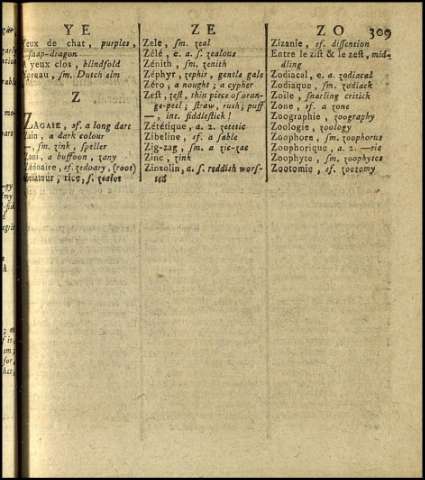 YE
Yeux de chat, purples,
snap-dragon
A yeux clos, blindfold
Ypreau, sm. Dutch elm
Z
ZAGAIE, sf. a long dart
Zain, a dark colour
—, sm. zink, spelter
Zani, a buffoon, zany
Zédoaire, sf. zedoary, (root)
rice, s. zealot
ZE
Zele, sm. zeal
Zélé, e. a. s. zealous
Zénith, sm. zenith
Zéphyr, zephir, gentle gale
Zéro, a nought; a cypher
Zest, zest, thin piece of oran-
ge-peel; straw, rush; puff
—, int. fiddlestick!
Zététique, a. 2. zetetic
Zibeline, sf. a sable
Zig-zag, sm. a zic-zac
Zinc, zink
Zinzolin, a. s. reddish wors-
ted
ZO 309
Zizanie, sf. dissention
Entre le zist & le zest, mid-
dling
Zodiacal, e. a. zodiacal
Zodiaque, sm. zodiack
Zoïle, snarling critick
Zone, sf. a zone
Zoographie, zoography
Zoologie, zoology
Zoophore, sm. zoophorus
Zoophorique, a. 2. —ric
Zoophyte, sm. zoophytes
Zootomie, sf. zootomy